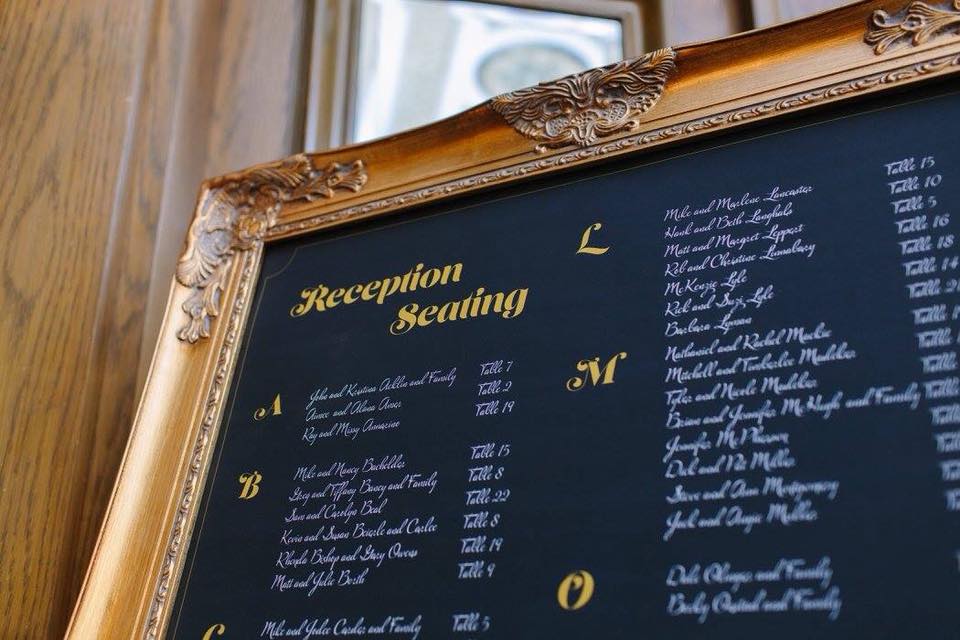 Reception
Seating
A
John and Kristina Acklin and Family Table 7
Aimee and Alana Amer Table 2
Ray and Missy Annarino Table 19
B
Mike and Nancy Bachelder Table 15
Greg and Tiffany Bancy and Family Table 8
Sam and Carolyn Beal Table 22
Kevin and Susan Beierle and Carlee Table 8
Rhonda Bishop and Gary Owens Table 19
Matt and Julie Borth Table 9
C
Mike and Jodee Carder and Family Table 5
L
Mike and Marlene Lancaster Table 15
Hank and Beth Langhals Table 10
Matt and Margret Leppert Table 5
Rob and Christine Linnabary Table 16
McKenzie Lyle Table 18
Rick and Suzi Lyle Table 14
Barbara Lyman Table
M
Nathaniel and Rachel Mackie Table
Mitchell and Timberlee Madelker Table
Tyler and Nicole Madelker Table
Brian and Jennifer McHugh and Family Table
Jennifer
Dick and Pat Miller
Steve and Ann Montgomery
Jack and Angie
O
Dale and Family
Becky and Family